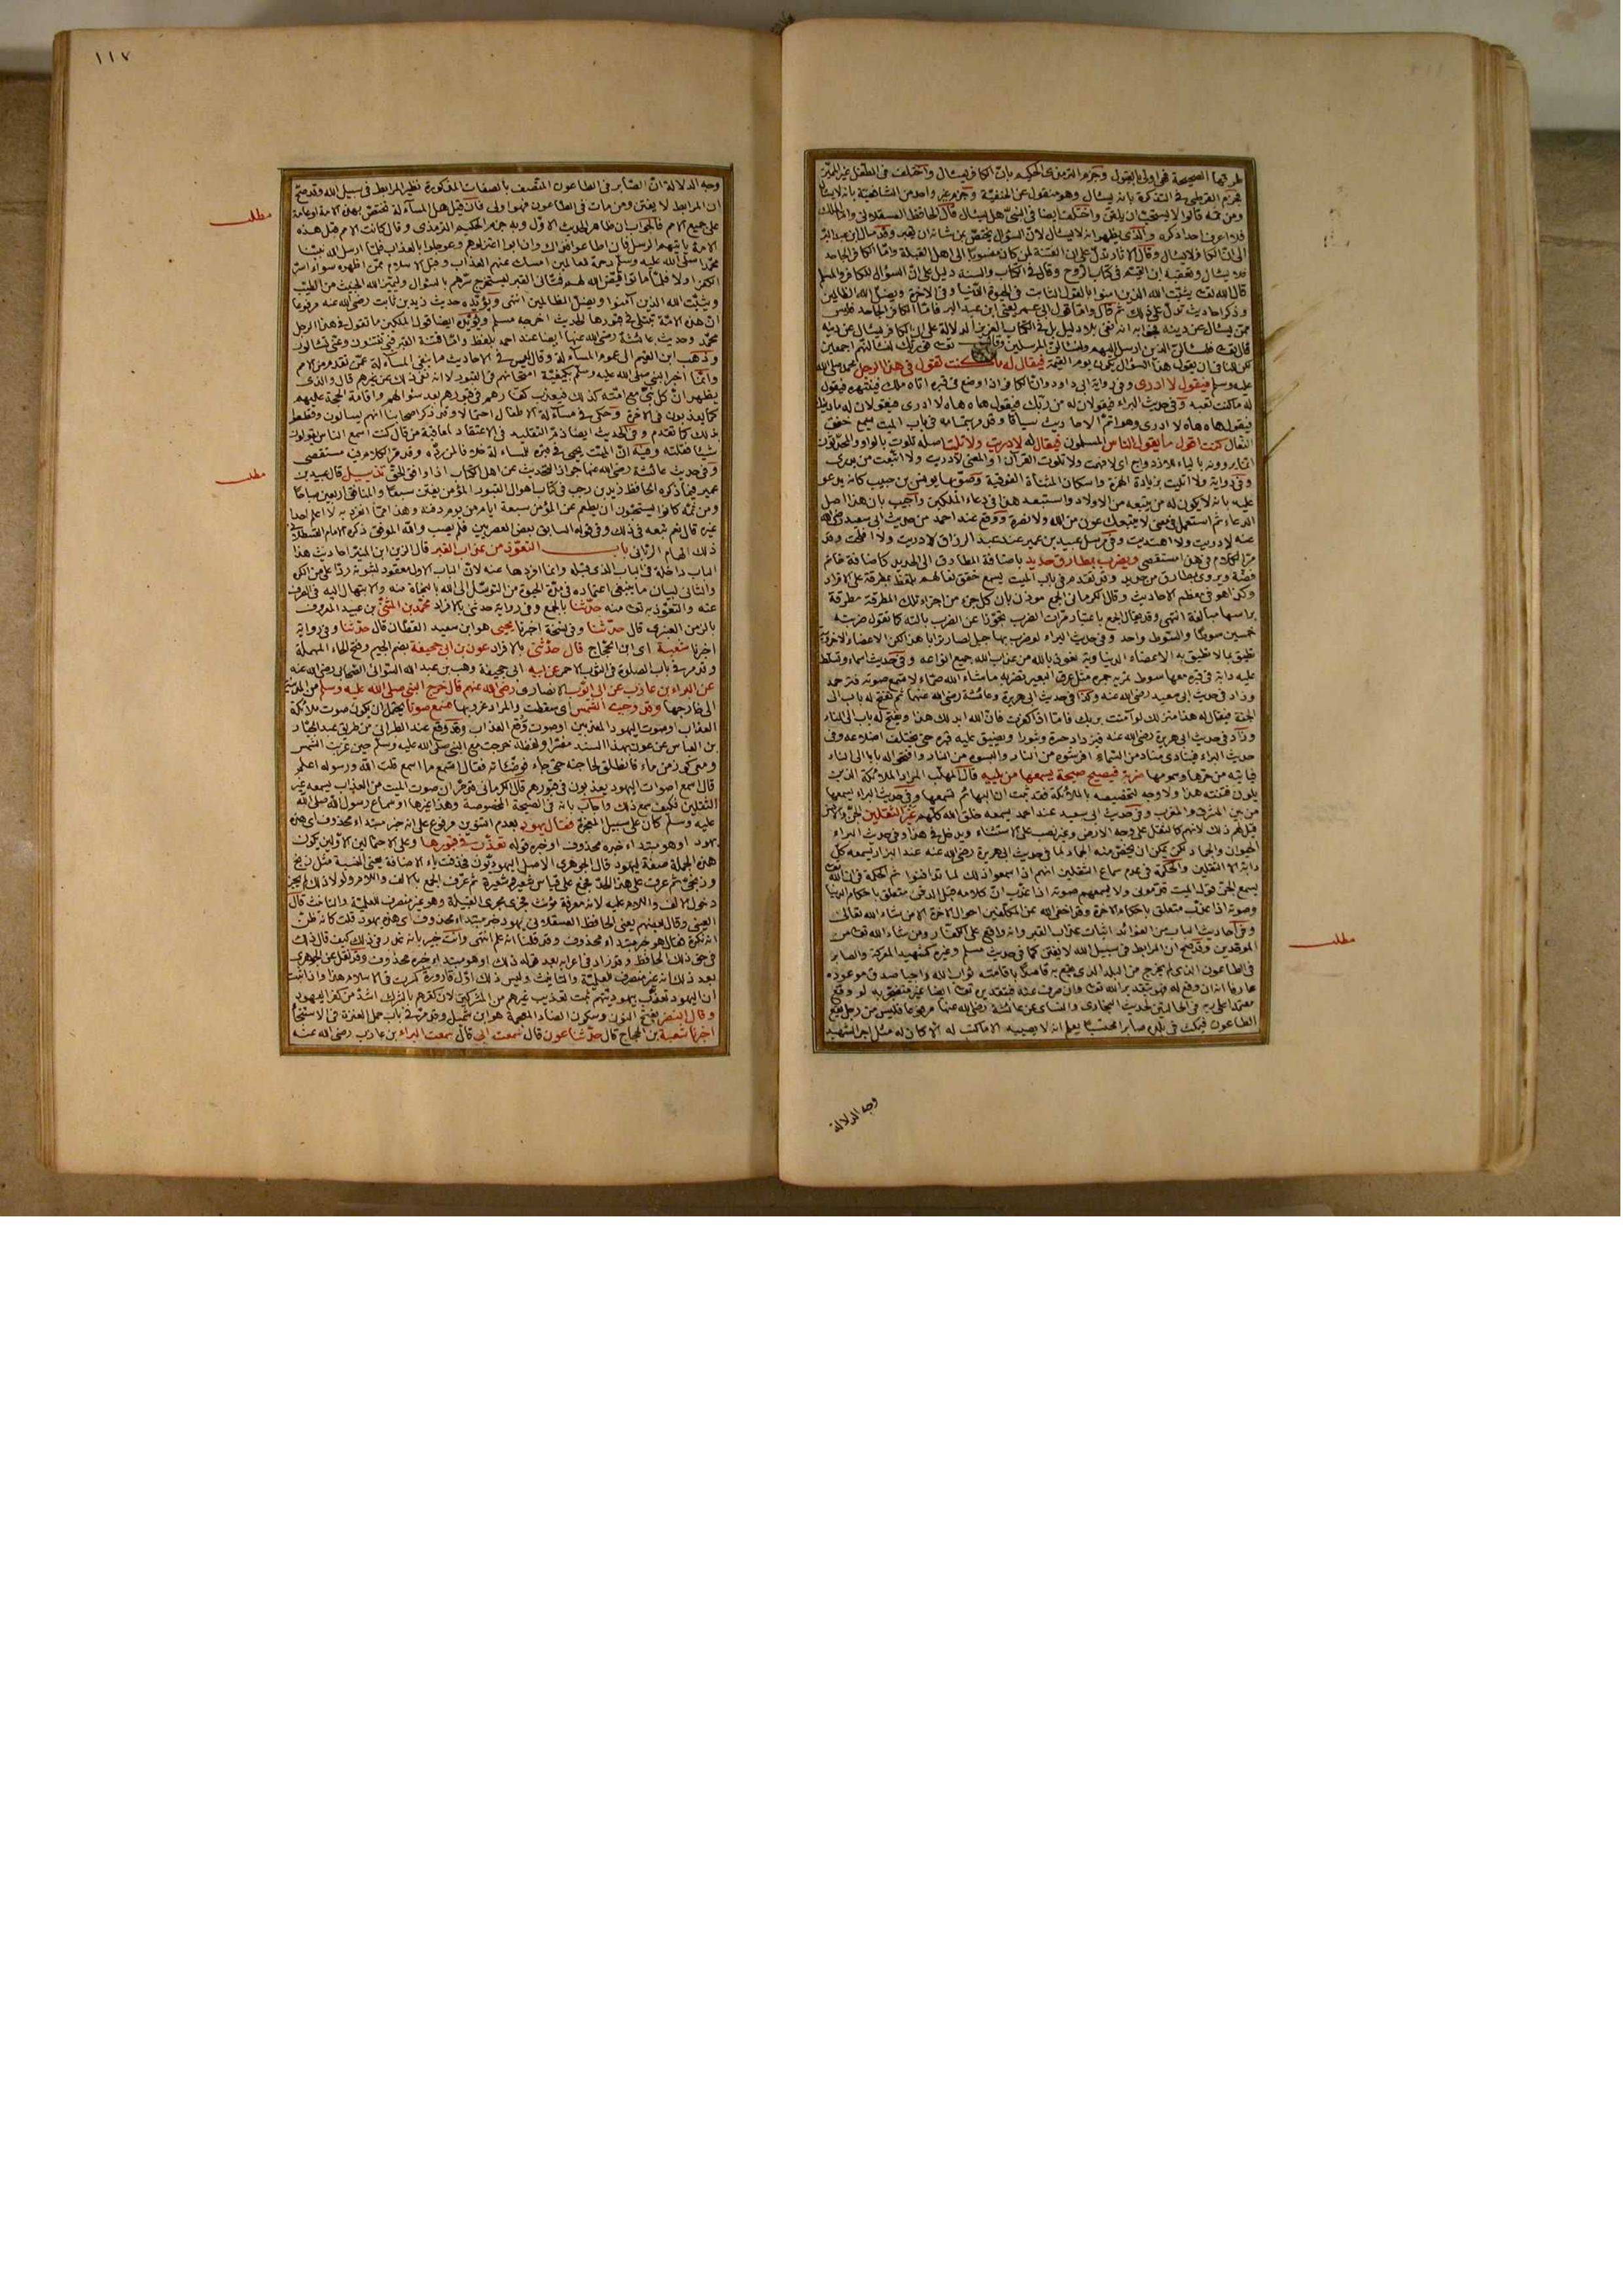 طرقها الصحيحة فهي اولى بالقبول وجزم الترمذي الحكيم بان الكافر يسأل واختلف في الطفل غير المميز
فجزم القرطبي في التذكرة بانه يسأل وهو منقول عن الحنفية وجزم غير واحد من الشافعية بانه لا يسأل
ومن ثمة قالوا لا يستحب ان يلقن واختلف ايضا في النبي هل يسأل قال الحافظ العسقلاني واما الملك
فلا اعرف احدا ذكره والذي يظهر انه لا يسأل لان السؤال يختص بمن شانه ان يقبر وقد مال ابن عبد البر
الى ان الكافر لا يسأل وقال الآثار تدل على ان الفتنة لمن كان منسوبا الى اهل القبلة واما الكافر الجاحد
فلا يسأل وتعقبه ابن القيم في كتاب الروح وقال في الكتاب والسنة دليل على ان السؤال للكافر والمسلم
قال الله تعالى يثبت الله الذين آمنوا بالقول الثابت في الحيوة الدنيا وفي الاخرة ويضل الله الظالمين
وذكر احاديث تدل على ذلك ثم قال واما قول ابي عمر يعني ابن عبد البر فاما الكافر الجاحد فليس
ممن يسأل عن دينه فجوابه انه نفي بلا دليل بل في الكتاب العزيز الدلالة على ان الكافر يسأل عن دينه
قال تعالى فلنسألن الذين ارسل اليهم ولنسألن المرسلين وقال تعالى فوربك لنسألنهم اجمعين
لكن للنافي ان يقول هذا السؤال يكون يوم القيمة فيقال له ما كنت تقول في هذا الرجل محمد صلى الله
عليه وسلم فيقول لا ادري وفي رواية ابي داود وان الكافر اذا وضع في قبره اتاه ملك فينتهره فيقول
له ما كنت تعبد وفي حديث البراء فيقولان له من ربك فيقول هاه هاه لا ادري فيقولان له ما دينك
فيقول هاه هاه لا ادري وهو اتم الاحاديث سياقا وقد مر بتمامه في باب الميت يسمع خفق
النعال كنت اقول ما يقول الناس المسلمون فيقال له لا دريت ولا تليت اصله تلوت بالواو والمحدثون
انما يروونه بالياء للازدواج اي لا فهمت ولا تلوت القرآن او المعنى لا دريت ولا اتبعت من يدري
وفي رواية ولا اتليت بزيادة الهمزة واسكان المثناة الفوقية وصوبها يونس بن حبيب كانه يدعو
عليه بانه لا يكون له من يتبعه من الاولاد واستبعد هذا في دعاء الملكين واجيب بان هذا اصل
عنه لا دريت ولا اهتديت وفي مرسل عبيد بن عمير عند عبد الرزاق لا دريت ولا افلحت وقد
مر الكلام في هذا مستقصى ويضرب بمطارق حديد باضافة المطارق الى الحديد كاضافة خاتم
فضة ويروى بمطارق من حديد وقد تقدم في باب الميت يسمع خفق نعالهم بلفظ بمطرقة على الافراد
وكذا هو في معظم الاحاديث وقال الكرماني الجمع موذن بان كل جزء من اجزاء تلك المطرقة مطرقة
براسها مبالغة انتهى
وزاد في حديث ابي سعيد رضي الله عنه وكذا في حديث ابي هريرة وعائشة رضي الله عنهما ثم يفتح له باب الى
الجنة فيقال له هذا منزلك لو آمنت بربك فاما اذ كفرت فان الله ابدلك هذا ويفتح له باب الى النار
وزاد في حديث ابي هريرة رضي الله عنه فيزداد حسرة وثبورا ويضيق عليه قبره حتى يختلف اضلاعه وفي
حديث البراء فينادي مناد من السماء افرشوه من النار والبسوه من النار وافتحوا له بابا الى النار
فيأتيه من حرها وسمومها ضربة فيصيح صيحة يسمعها من يليه قال المهلب المراد الملائكة الذين
يلون فتنته هذا ولا وجه لتخصيصه بالملائكة فقد ثبت ان البهائم تسمعها وفي حديث البراء يسمعها
من بين المشرق والمغرب وفي حديث ابي سعيد عند احمد يسمعه خلق الله كلهم غير الثقلين الجن والانس
قيل لهم ذلك لانهم كالثقل على وجه الارض وغير نصب على الاستثناء ويدخل في هذا وفي حديث البراء
الحيوان والجماد لكن يمكن ان يخص منه الجماد لما في حديث ابي هريرة رضي الله عنه عند البزار يسمعه كل
دابة الا الثقلين والحكمة في عدم سماع الثقلين انهم اذا سمعوا ذلك لما تدافنوا ثم الحكمة في ان الله تعالى
يسمع الجن قول الميت قدموني ولا يسمعهم صوته اذا عذب ان كلامه قبل الدفن متعلق باحكام الدنيا
وصوته اذا عذب متعلق باحكام الاخرة وقد اخفى الله عن المكلفين احوال الاخرة الا من شاء الله تعالى
وفي احاديث الباب من الفوائد اثبات عذاب القبر وانه واقع على الكفار ومن شاء الله تعالى من
الموحدين وقد صح ان المرابط في سبيل الله لا يفتن كما في حديث مسلم وغيره كشهيد المعركة والصابر
في الطاعون الذي لم يخرج من البلد الذي يقع به قاصدا باقامته ثواب الله راجيا صدق موعوده
عارفا انه ان وقع له فهو بتقدير الله تعالى وان صرف عنه فبتقديره تعالى ايضا غير متضجر به لو وقع
معتمدا على ربه في الحالتين لحديث البخاري والنسائي عن عائشة رضي الله عنها مرفوعا فليس من رجل يقع
الطاعون فيمكث في بلده صابرا محتسبا يعلم انه لا يصيبه الا ما كتب له الا كان له مثل اجر الشهيد
وجه الدلالة
مطلب
١١٧
وجه الدلالة ان الصابر في الطاعون المتصف بالصفات المذكورة نظير المرابط في سبيل الله وقد صح
ان المرابط لا يفتن ومن مات في الطاعون فهو اولى فان قيل هل المسألة تختص بهذه الامة او عامة
على جميع الامم فالجواب ان ظاهر الحديث الاول وبه جزم الحكيم الترمذي وقال كانت الامم قبل هذه
الامة ياتيهم الرسل فان اطاعوا فذاك وان ابوا اعتزلوهم وعوجلوا بالعذاب فلما ارسل الله نبينا
محمدا صلى الله عليه وسلم رحمة للعالمين امسك عنهم العذاب وقبل الاسلام ممن اظهره سواء اسر
الكفر او لا فلما ماتوا قيض الله لهم فتاني القبر ليستخرج سرهم بالسؤال وليميز الله الخبيث من الطيب
ويثبت الله الذين آمنوا ويضل الظالمين انتهى ويؤيده حديث زيد بن ثابت رضي الله عنه مرفوعا
ان هذه الامة تبتلى في قبورها الحديث اخرجه مسلم ويؤيده ايضا قول الملكين ما تقول في هذا الرجل
محمد وحديث عائشة رضي الله عنها ايضا عند احمد بلفظ واما فتنة القبر فبي تفتنون وعني تسألون
وذهب ابن القيم الى عموم المسألة وقال ليس في الاحاديث ما ينفي المسألة عمن تقدم من الامم
وانما اخبر النبي صلى الله عليه وسلم بكيفية امتحانهم في القبور لا انه نفى ذلك عن غيرهم قال والذي
يظهر ان كل نبي مع امته كذلك فيعذب كفارهم في قبورهم بعد سؤالهم واقامة الحجة عليهم
كما يعذبون في الاخرة وحكى في مسألة الاطفال احتمالا
بذلك كما تقدم وفي الحديث ايضا ذم التقليد في الاعتقاد لمعاقبة من قال كنت اسمع الناس يقولون
شيئا فقلته وفيه ان الميت يحيى في قبره للمسألة خلافا لمن رده وقد مر الكلام فيه مستقصى
وفي حديث عائشة رضي الله عنها جواز التحديث عن اهل الكتاب اذا وافق الحق تذييل قال عبيد بن
عمير فيما ذكره الحافظ زين بن رجب في كتاب اهوال القبور المؤمن يفتن سبعا والمنافق اربعين صباحا
ومن ثمة كانوا يستحبون ان يطعم عن المؤمن سبعة ايام من يوم دفنه وهذا مما انفرد به لا اعلم احدا
غيره قال نعم تبعه في ذلك وفي قوله السابق بعض العصريين فلم يصب والله الموفق ذكره الامام القسطلاني
ذلك الهام الرباني باب التعوذ من عذاب القبر قال الزين ابن المنير احاديث هذا
الباب داخلة في الباب الذي قبله وانما افردها عنه لان الباب الاول معقود لثبوته ردا على من انكره
والثاني لبيان ما ينبغي اعتماده في مدة الحيوة من التوسل الى الله بالنجاة منه والابتهال اليه في الصرف
عنه والتعوذ به تعالى منه حدثنا بالجمع وفي رواية حدثني بالافراد محمد بن المثنى بن عبيد المعروف
بالزمن العنبري قال حدثنا وفي نسخة اخبرنا يحيى هو ابن سعيد القطان قال حدثنا وفي رواية
اخبرنا شعبة اي ابن الحجاج قال حدثني بالافراد عون بن ابي جحيفة بضم الجيم وفتح الحاء المهملة
وقد مر في باب الصلوة في الثوب الاحمر عن ابيه ابي جحيفة وهب بن عبد الله السوائي الصحابي رضي الله عنه
عن البراء بن عازب عن ابي ايوب الانصاري رضي الله عنهم قال خرج النبي صلى الله عليه وسلم من المدينة
الى خارجها وقد وجبت الشمس اي سقطت والمراد غروبها فسمع صوتا يحتمل ان يكون صوت ملائكة
العذاب او صوت اليهود المعذبين او صوت وقع العذاب وقد وقع عند الطبراني من طريق عبد الجبار
بن العباس عن عون بهذا السند مفسرا ولفظه خرجت مع النبي صلى الله عليه وسلم حين غربت الشمس
ومعي كوز من ماء فانطلق لحاجته حتى جاء فوضأته فقال اتسمع ما اسمع قلت الله ورسوله اعلم
قال اسمع اصوات اليهود يعذبون في قبورهم قال الكرماني قد مر ان صوت الميت من العذاب يسمعه غير
الثقلين فكيف سمع ذلك واجاب بانه في الصيحة المخصوصة وهذا غيرها او سماع رسول الله صلى الله
عليه وسلم كان على سبيل المعجزة فقال يهود بعدم التنوين مرفوع على انه خبر مبتداء محذوف اي هذه
يهود او هو مبتداء خبره محذوف او خبره قوله تعذب في قبورها وعلى الاحتمالين الاولين يكون
هذه الجملة صفة ليهود قال الجوهري الاصل اليهوديون فحذفت ياء الاضافة يعني النسبة مثل زنج
وزنجي ثم عرف على هذا الحد فجمع على قياس شعير وشعيرة ثم عرف الجمع بالالف واللام ولولا ذلك لم يجز
دخول الالف واللام عليه لانه معرفة مؤنث فجرى مجرى القبيلة وهو غير منصرف للعلمية والتانيث قال
العيني وقال بعضهم يعني الحافظ العسقلاني يهود خبر مبتداء محذوف اي هذه يهود قلت كانه ظن
انه نكرة فقال هو خبر مبتداء محذوف وقد قلنا انه علم انتهى وانت خبير بانه
في حق ذلك الحافظ وقد زاد في اعرابه بعد قوله ذلك او هو مبتداء خبره محذوف وقد نقل عن الجوهري
بعد ذلك انه غير منصرف للعلمية والتانيث وليس ذلك اول قارورة كسرت في الاسلام هذا واذا ثبت
ان اليهود تعذب بيهوديتهم ثبت تعذيب غيرهم من المشركين لان كفرهم بالشرك اشد من كفر اليهود
وقال النضر بفتح النون وسكون الضاد المعجمة هو ابن شميل وقد مر في باب حمل العنزة في الاستنجاء
اخبرنا شعبة بن الحجاج قال حدثنا عون قال سمعت ابي قال سمعت البراء بن عازب رضي الله عنه
مطلب
مطلب